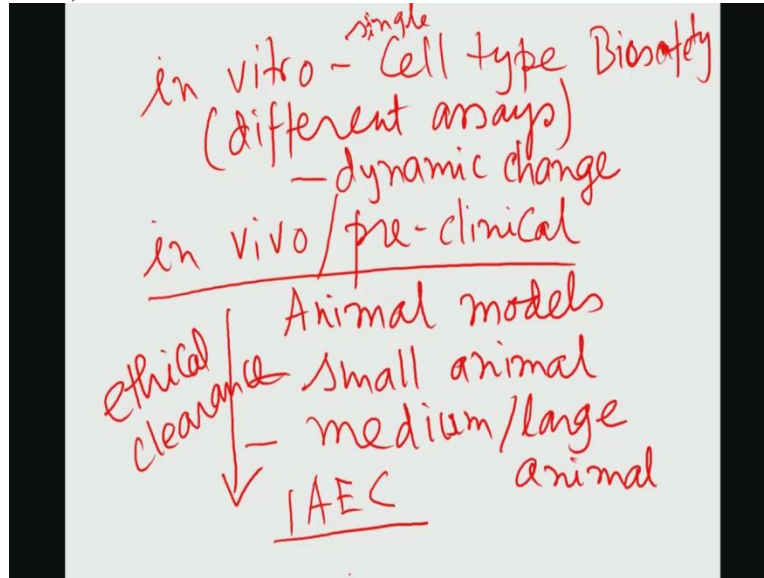 in vitro - single Cell type Biosafety
(different assays)
- dynamic change
in vivo/pre-clinical
Animal models
ethical clearance - small animal
- medium/large animal
IAEC